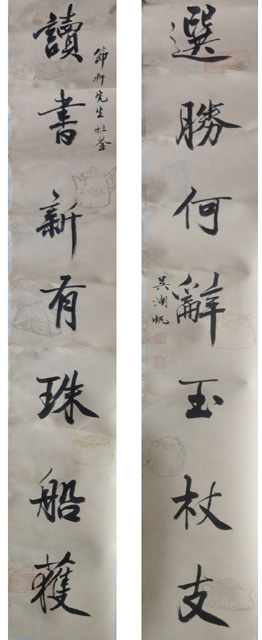 讀書新有珠船獲
節卿先生雅鑒
選勝何辭玉杖支
吳湖帆